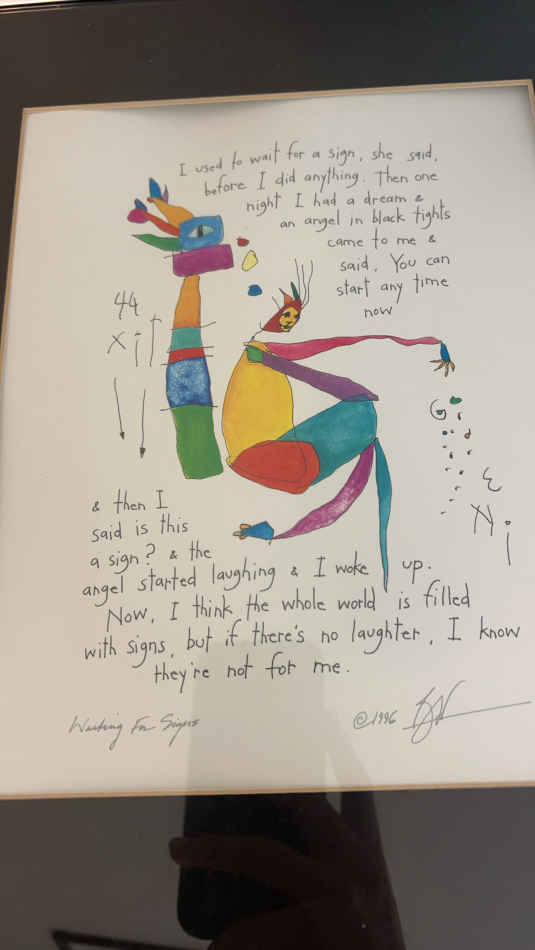 I used to wait for a sign, she said,
before I did anything. Then one
night I had a dream &
an angel in black tights
came to me &
said, You can
start any time
now
44
xit
G
& then I
said is this
a sign? & the
angel started laughing & I woke up.
Now, I think the whole world is filled
with signs, but if there's no laughter, I know
they're not for me.
Waiting For Signs
©1996